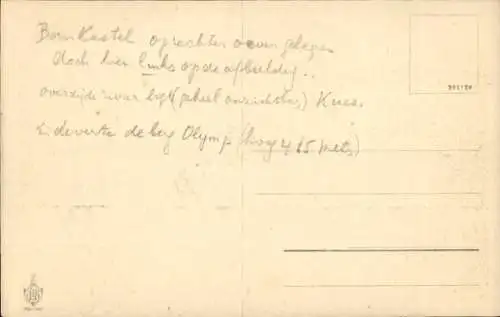 BernKastel op rechter oever gelegen
doch hier links op de afbeelding..
overzijde rivier ligt (geheel onzichtbaar) Kues.
in de verte de berg Olymp (hoog 415 meter)